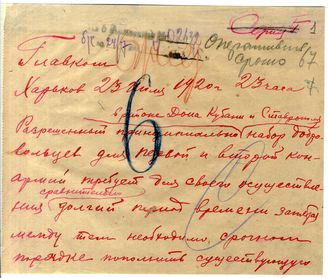 Серия Г 1
Оперативно
Срочно 67
Главком
Харьков 23 июня 1920 г 23 часа
6
в районе Дона Кубани и Ставрополя
Разрешенный принципиально набор добро
вольцев для первой и второй кон
армий требует для своего осуществле
сравнительно
ния долгий период времени
между тем необходимо, срочном
порядке пополнить существующую